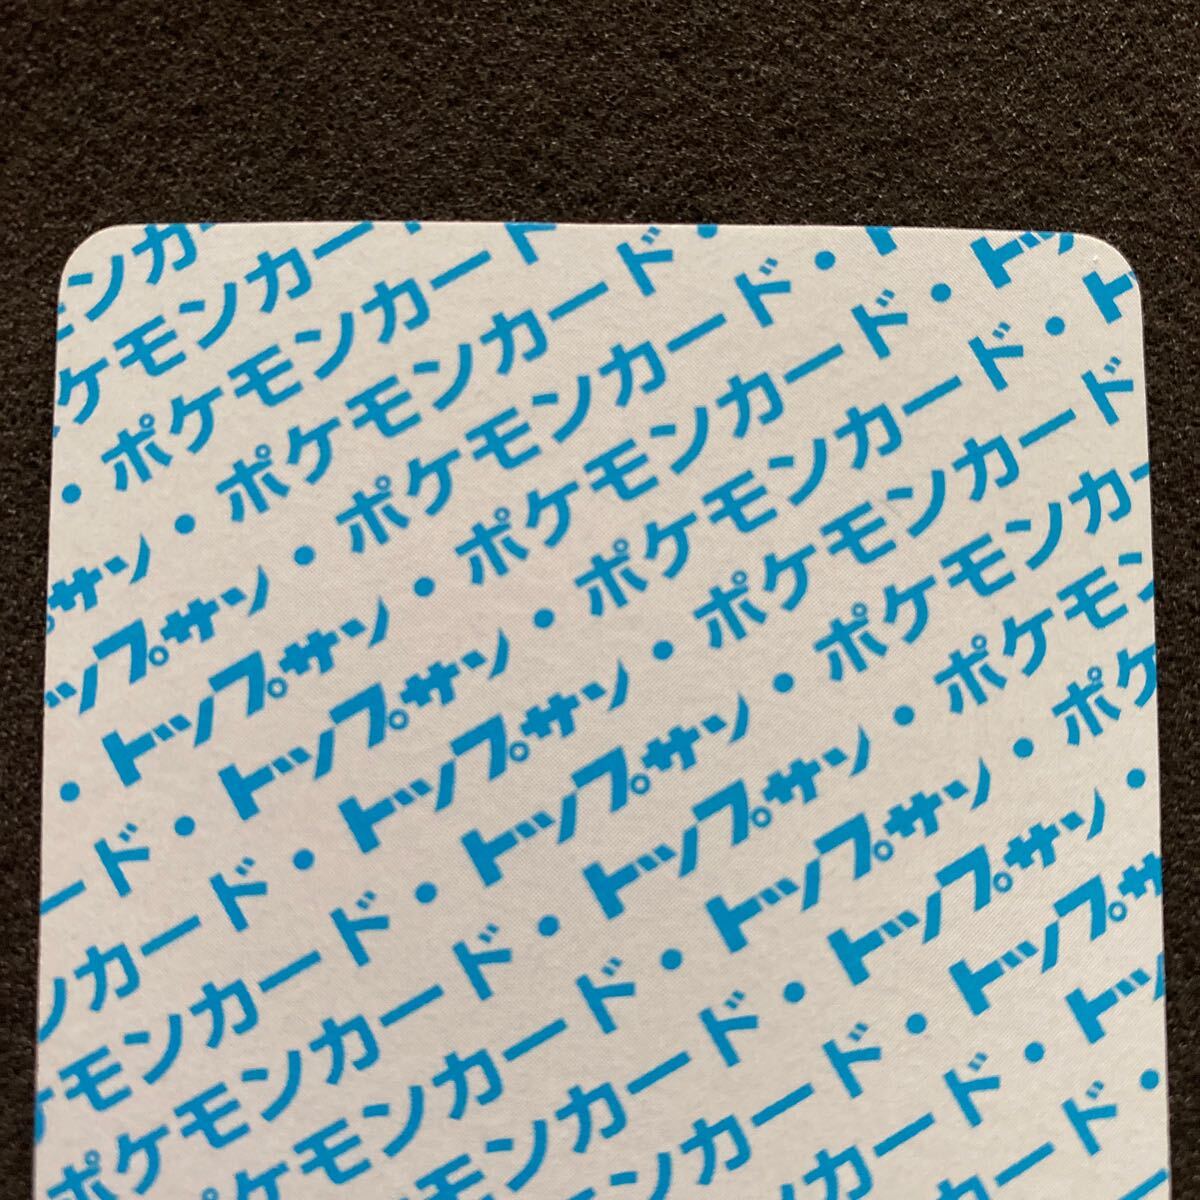 モンカー
ケモンカード
・ポケモンカード
サン・ポケモンカード・
トップサン・ポケモンカード・ト
・トップサン・ポケモンカード・トップ
ード・トップサン・ポケモンカード・ト
ンカード・トップサン・ポケモンカード
ケモンカード・トップサン・ポケモンカー
ポケモンカード・トップサン・ポケモン
ポケモンカード・トップサン・ポケ
モンカード・トップサン・
ンカード・トップサ
カード・トップ
ード・